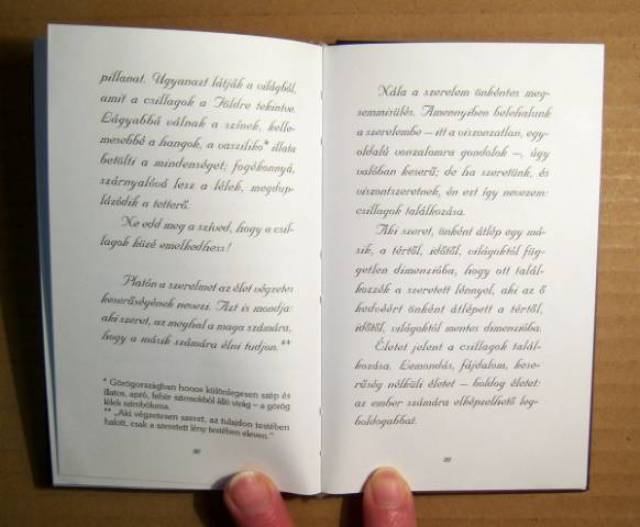 pillanat. Ugyanazt látják a világból,
amit a csillagok a Földre tekintve.
Lágyabbá válnak a színek, kelle-
mesebbé a hangok, a vasziliko* illata
betölti a mindenséget; fogékonnyá,
szárnyalóvá lesz a lélek, megdup-
lázódik a tetterő.
Ne edd meg a szíved, hogy a csil-
lagok közé emelkedhess!
Platón a szerelmet az élet végzetes
keserűségének nevezi. Azt is mondja:
aki szeret, az meghal a maga számára,
hogy a másik számára élni tudjon.**
* Görögországban honos különlegesen szép és
illatos, apró, fehér szirmokból álló virág – a görög
lélek szimbóluma.
** „Aki végzetesen szeret, az tulajdon testében
halott, csak a szeretett lény testében eleven."
Nála a szerelem önkéntes meg-
semmisülés. Amennyiben belehalunk
a szerelembe – itt a viszonzatlan, egy-
oldalú vonzalomra gondolok –, úgy
valóban keserű; de ha szeretünk, és
viszontszeretnek, én ezt így nevezem:
csillagok találkozása.
Aki szeret, önként átlép egy má-
sik, a tértől, időtől, világoktól füg-
getlen dimenzióba, hogy ott talál-
kozzék a szeretett lénnyel, aki az ő
kedvéért önként átlépett a tértől,
időtől, világoktól mentes dimenzióba.
Életet jelent a csillagok talál-
kozása. Lemondás, fájdalom, kese-
rűség nélküli életet – boldog életet:
az ember számára elképzelhető leg-
boldogabbat.